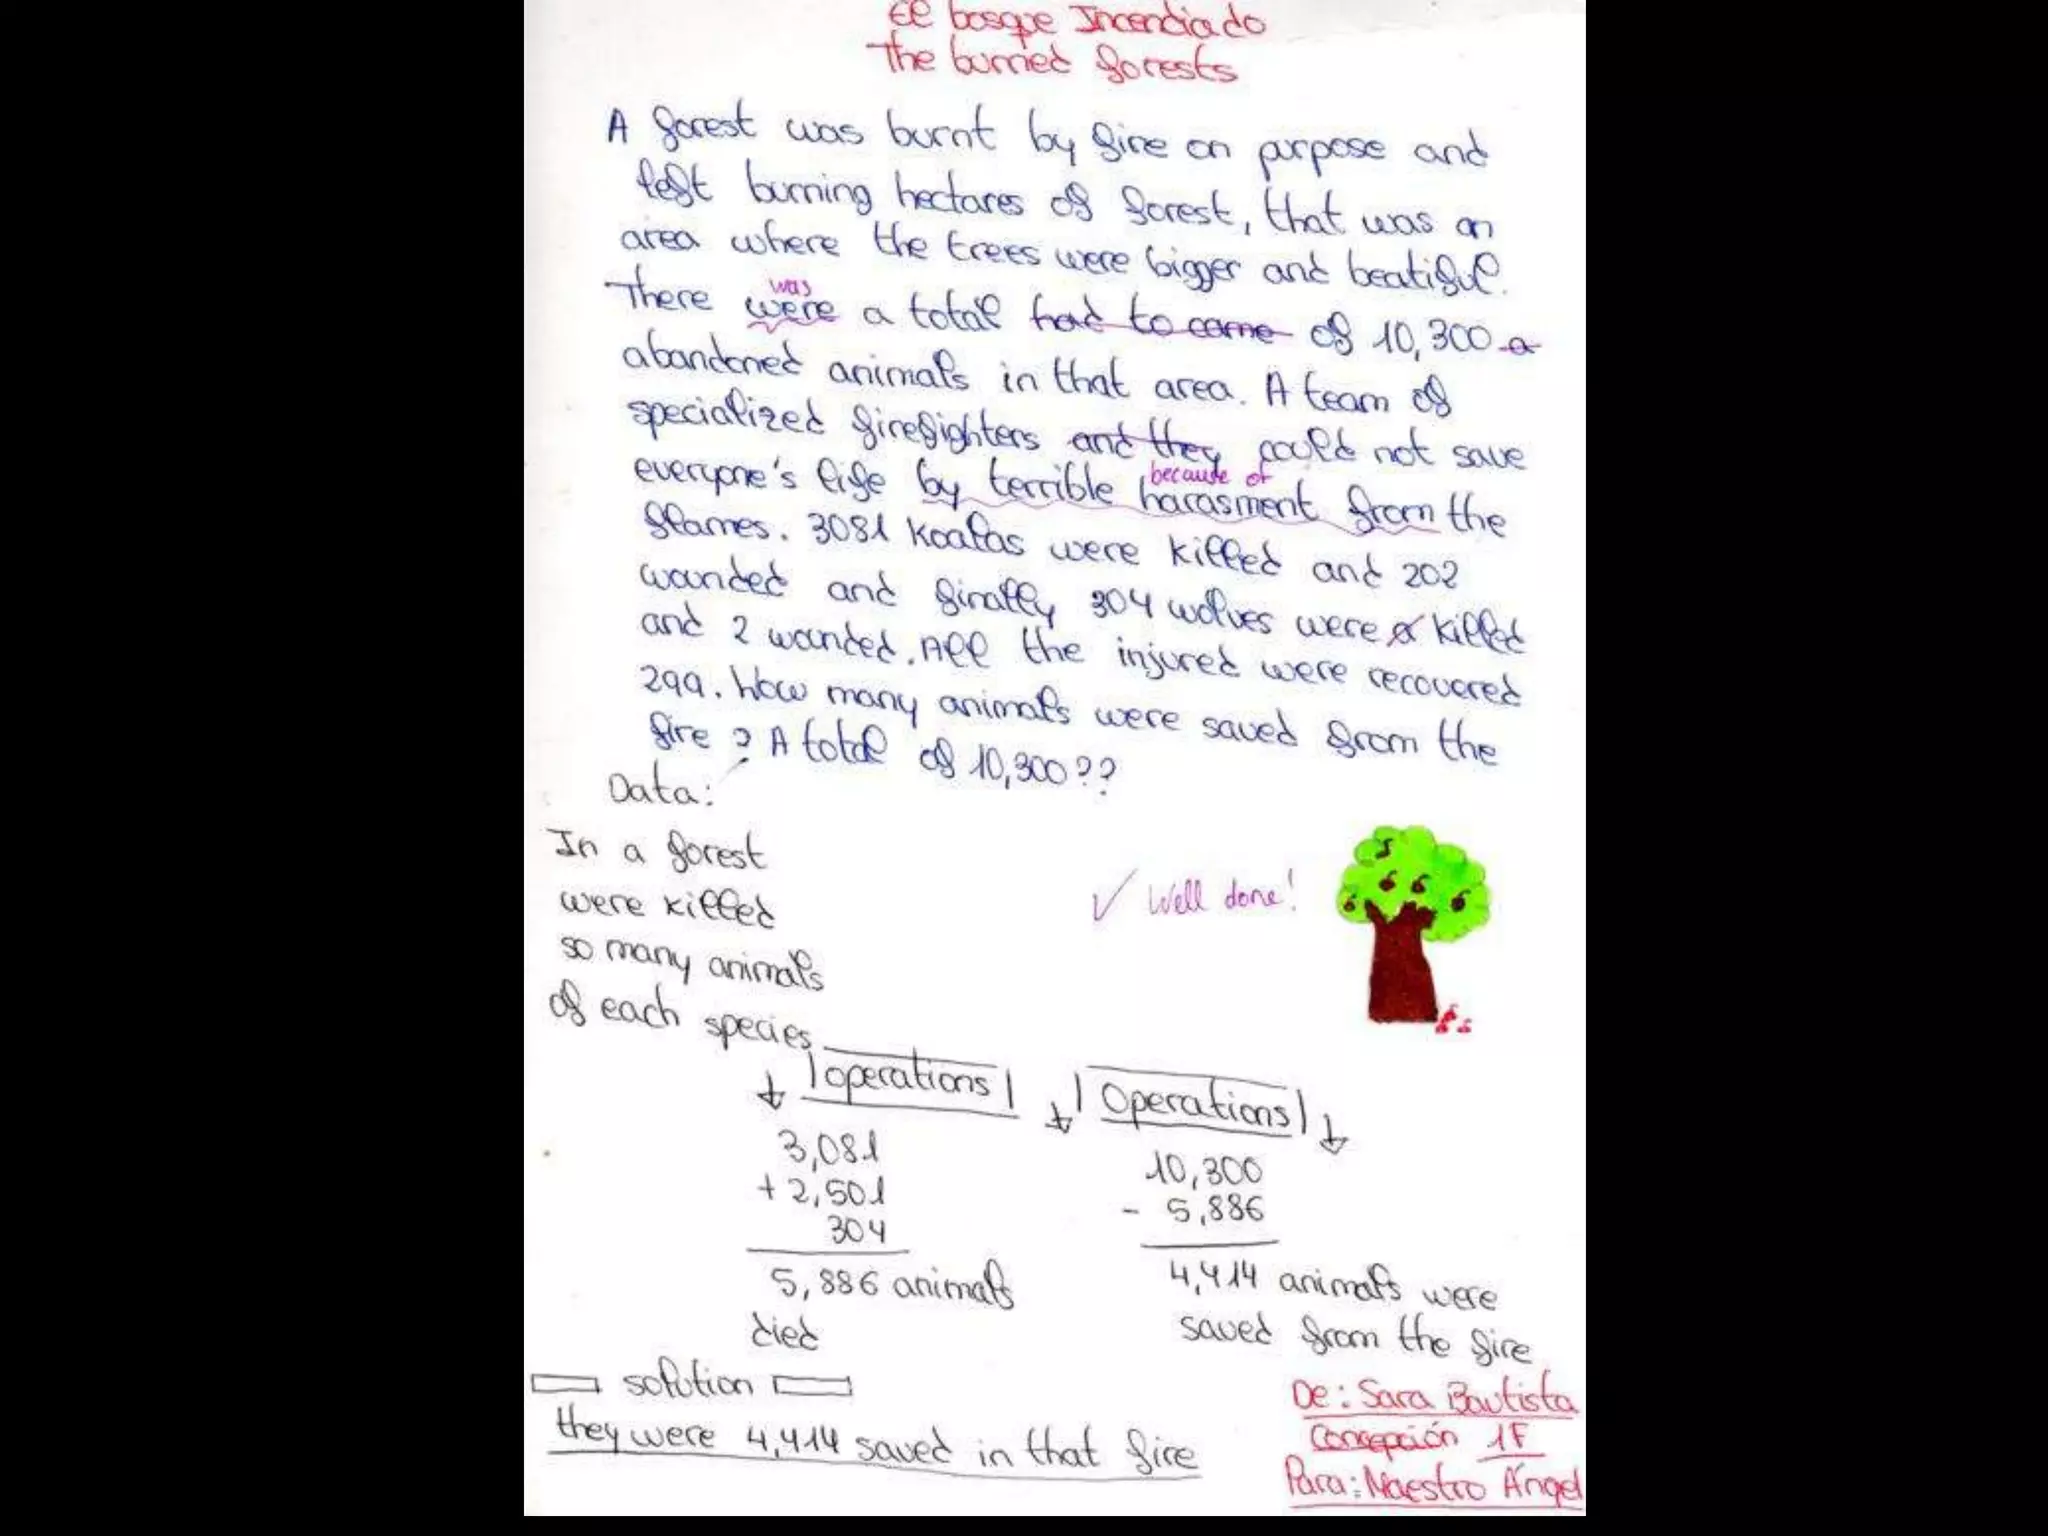 El bosque Incendiado
The burned forests
A forest was burnt by fire on purpose and
left burning hectares of forest, that was an
area where the trees were bigger and beatiful.
was
There were a total had to came of 10,300 a
abandoned animals in that area. A team of
specialized firefighters and they could not save
because of
everyone's life by terrible harasment from the
flames. 3081 Koalas were killed and 202
wounded and finally 304 wolves were killed
and 2 wounded. All the injured were recovered
299. How many animals were saved from the
fire? A total of 10,300??
Data:
In a forest
were killed
so many animals
of each species
✓ Well done!
operations
3,081
+ 2,501
304
5,886 animals
died
Operations
10,300
- 5,886
4,414 animals were
saved from the fire
solution
they were 4,414 saved in that fire
De: Sara Bautista
Concepción 1F
Para: Maestro Ángel